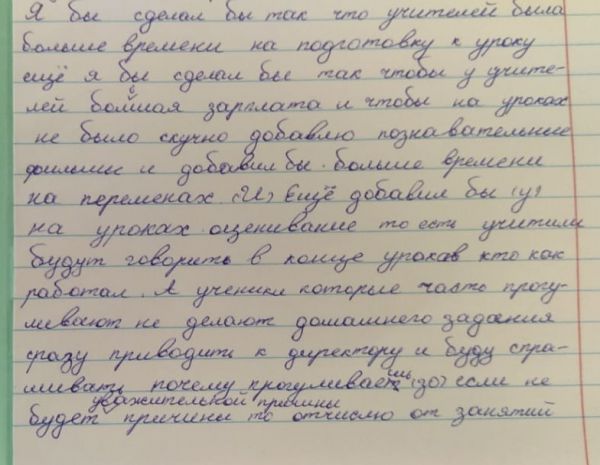 Я бы сделал бы так что учителей была
больше времени на подготовку к уроку
ещё я бы сделал бы так чтобы у учите-
лей болшая зарплата и чтобы на уроках
не было скучно добавлю познавательные
фильмы и добавил бы. больше времени
на переменах. (И) Ещё добавил бы (у)
на уроках оценивание то есть учители
будут говорить в конце уроков кто как
работал. А ученики которые часть прогу-
ливают не делают домашнего задания
сразу приводить к директору и буду спра-
шивать почему прогуливаешь (зо) если не
будет уважительной причины причины то отчислю от занятий